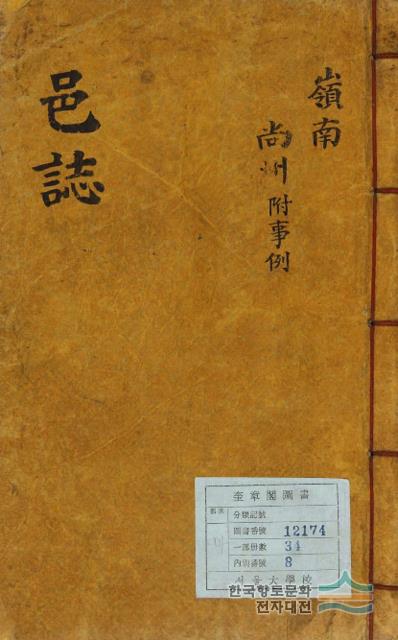 嶺南
尙州 附事例
邑誌
奎章閣圖書
分類記號
圖書番號 12174
一部冊數 34
內別番號 8
서울大學校
한국향토문화
전자대전